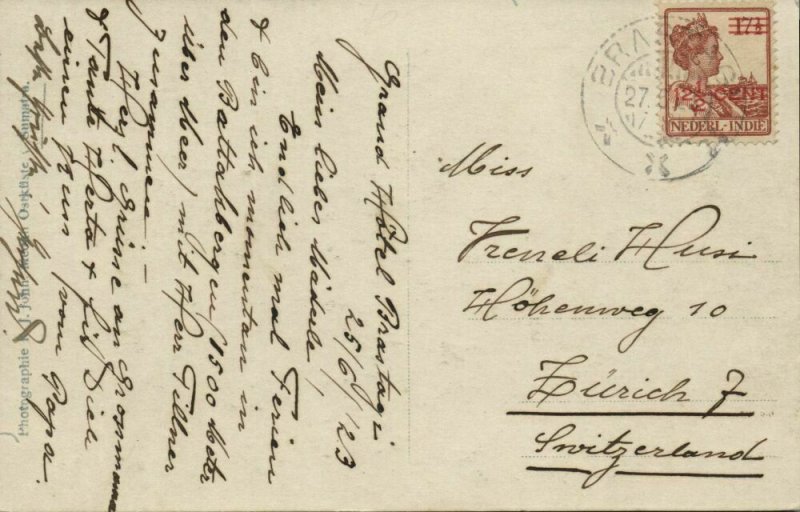 Grand Hôtel Brastagi
25/6/23
Mein liebes Mädele,
Endlich mal Ferien
& bin ich momentan in
den Battakbergen (1500 Meter
über Meer) mit Herr Fellner
zusammen. —
Herzl. Grüsse an Grossmama
& Tante Herta & für Dich
einen Kuss vom Papa.
Photographie J. Ostküste Sumatra.
BRA
27.
17½
12½ CENT
NEDERL-INDIE
Miss
Vreneli Husi
Höhenweg 10
Zürich 7
Switzerland